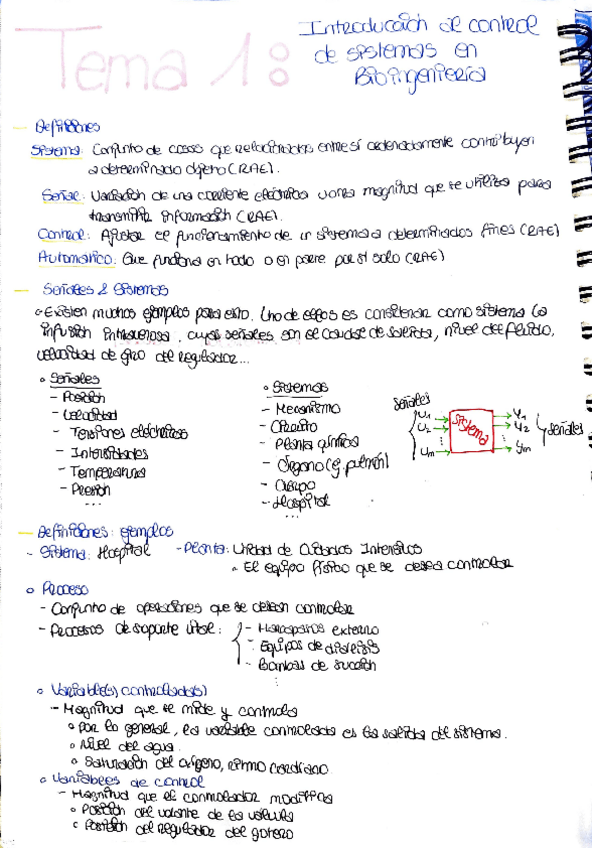 Tema 1:
Introducción al control
de sistemas en
Bioingeniería
- Definiciones
Sistema: Conjunto de cosas que relacionadas entre sí ordenadamente contribuyen
a determinado objeto (RAE).
Señal: Variación de una corriente eléctrica u otra magnitud que se utiliza para
transmitir información (RAE).
Control: Ajustar el funcionamiento de un sistema a determinados fines (RAE)
Automático: Que funciona en todo o en parte por sí solo (RAE)
- Señales & Sistemas
◦ Existen muchos ejemplos para esto. Uno de ellos es considerar como sistema la
infusión intravenosa, cuyas señales son el caudal de salida, nivel del fluido,
velocidad de giro del regulador...
◦ Señales
- Posición
- Velocidad
- Tensiones eléctricas
- Intensidades
- Temperatura
- Presión
...
◦ Sistemas
- Mecanismo
- Circuito
- Planta química
- Órgano (ej. pulmón)
- Cuerpo
- Hospital
...
Señales
u1
u2
⋮
um
Sistema
y1
y2
⋮
ym
señales
- Definiciones: ejemplos
- Sistema: Hospital
- Planta: Unidad de Cuidados Intensivos
◦ El equipo físico que se desea controlar
◦ Proceso
- Conjunto de operaciones que se desean controlar
- Procesos de soporte vital:
- Marcapasos externo
- Equipos de diálisis
- Bombas de succión
⋮
◦ Variable(s) controlada(s)
- Magnitud que se mide y controla
◦ Por lo general, la variable controlada es la salida del sistema.
◦ Nivel del agua.
◦ Saturación del oxígeno, ritmo cardíaco
◦ Variables de control
- Magnitud que el controlador modifica
◦ Posición del volante de la válvula
◦ Posición del regulador del gotero